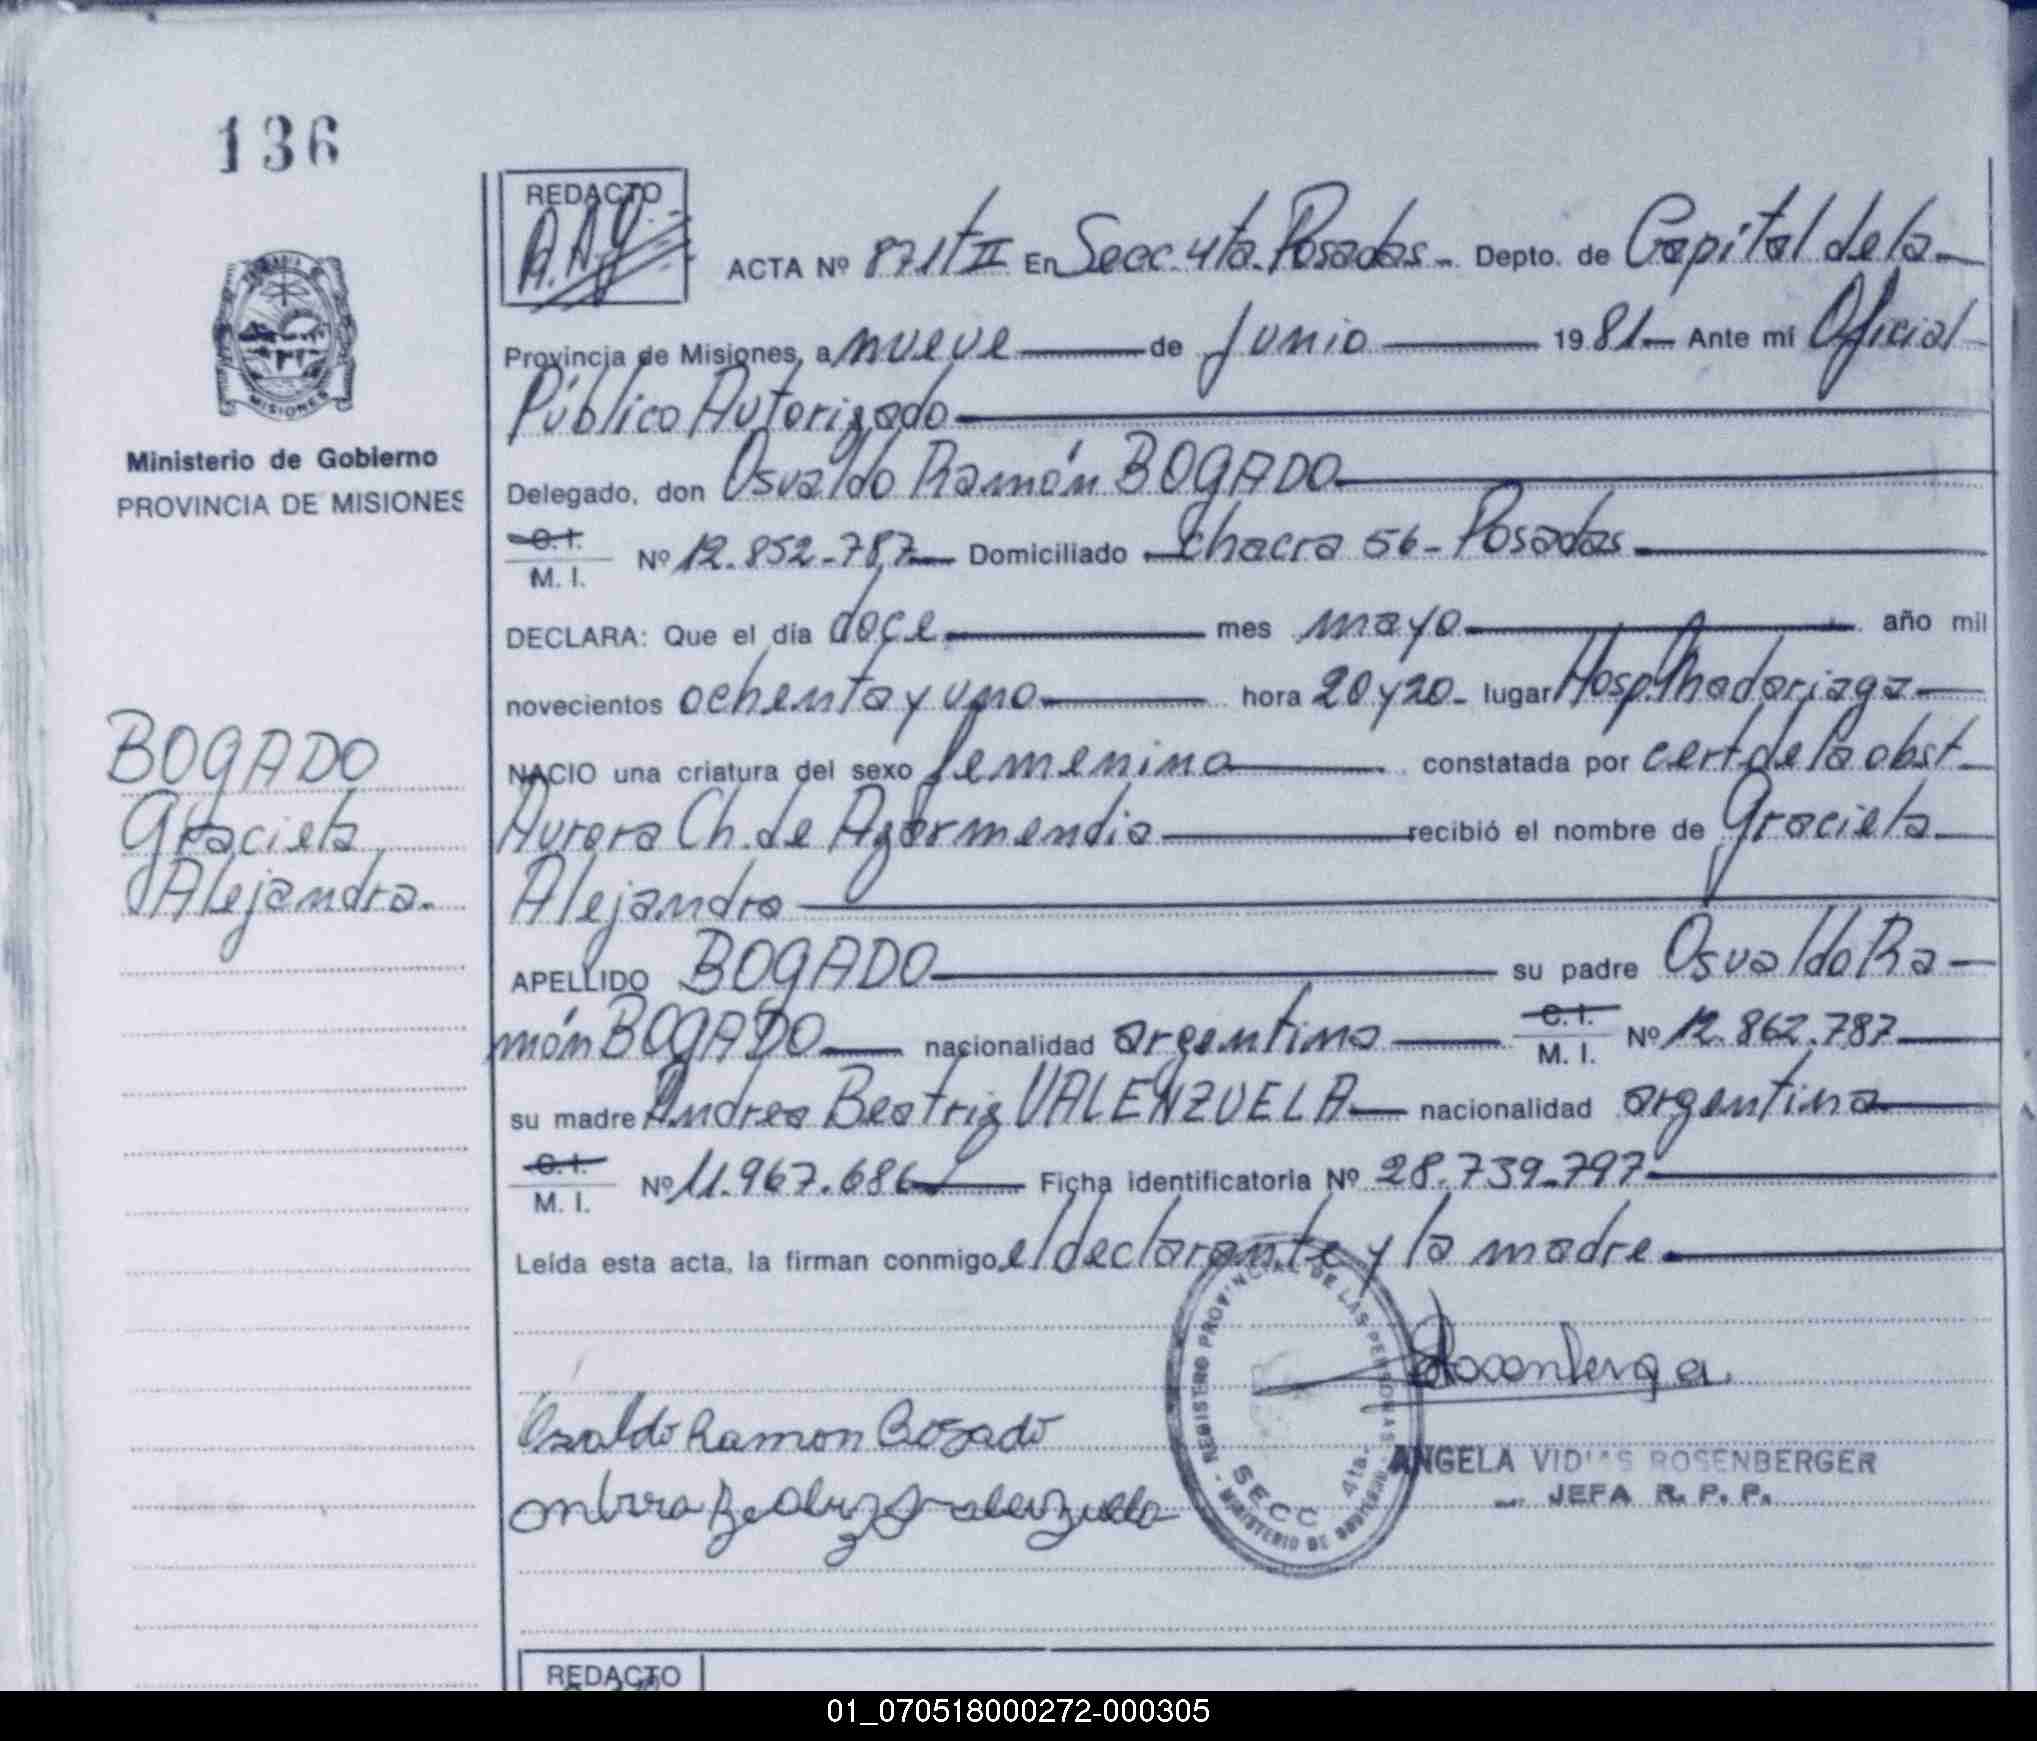 136
REDACTO
A.A.G.
ACTA Nº 871 tII En Secc. 4ta. Posadas - Depto. de Capital de la
Provincia de Misiones, a nueve de Junio 1981 Ante mí Oficial
Público Autorizado
Ministerio de Gobierno
PROVINCIA DE MISIONES
Delegado, don Osvaldo Ramón BOGADO
C. I. M. I. Nº 12.852.787 Domiciliado chacra 56 - Posadas
DECLARA: Que el día doce mes mayo año mil
novecientos ochenta y uno hora 20 y 20 - lugar Hosp. Madariaga
BOGADO
Graciela
Alejandra.
NACIO una criatura del sexo femenino constatada por cert de la obst
Aurora Ch. de Azarmendia recibió el nombre de Graciela
Alejandra
APELLIDO BOGADO su padre Osvaldo Ra-
món BOGADO nacionalidad argentino C. I. M. I. Nº 12.862.787
su madre Andrea Beatriz VALENZUELA nacionalidad argentina
C. I. M. I. Nº 11.967.686 Ficha identificatoria Nº 28.739.797
Leída esta acta, la firman conmigo el declarante y la madre
REGISTRO PROVINCIAL DE LAS PERSONAS
MINISTERIO DE GOBIERNO
SECC 4ta.
Osvaldo Ramon Bogado
Valenzuela
Rosenberger
ANGELA ROSENBERGER
JEFA R. P. P.
REDACTO
01_070518000272-000305
MISIONES